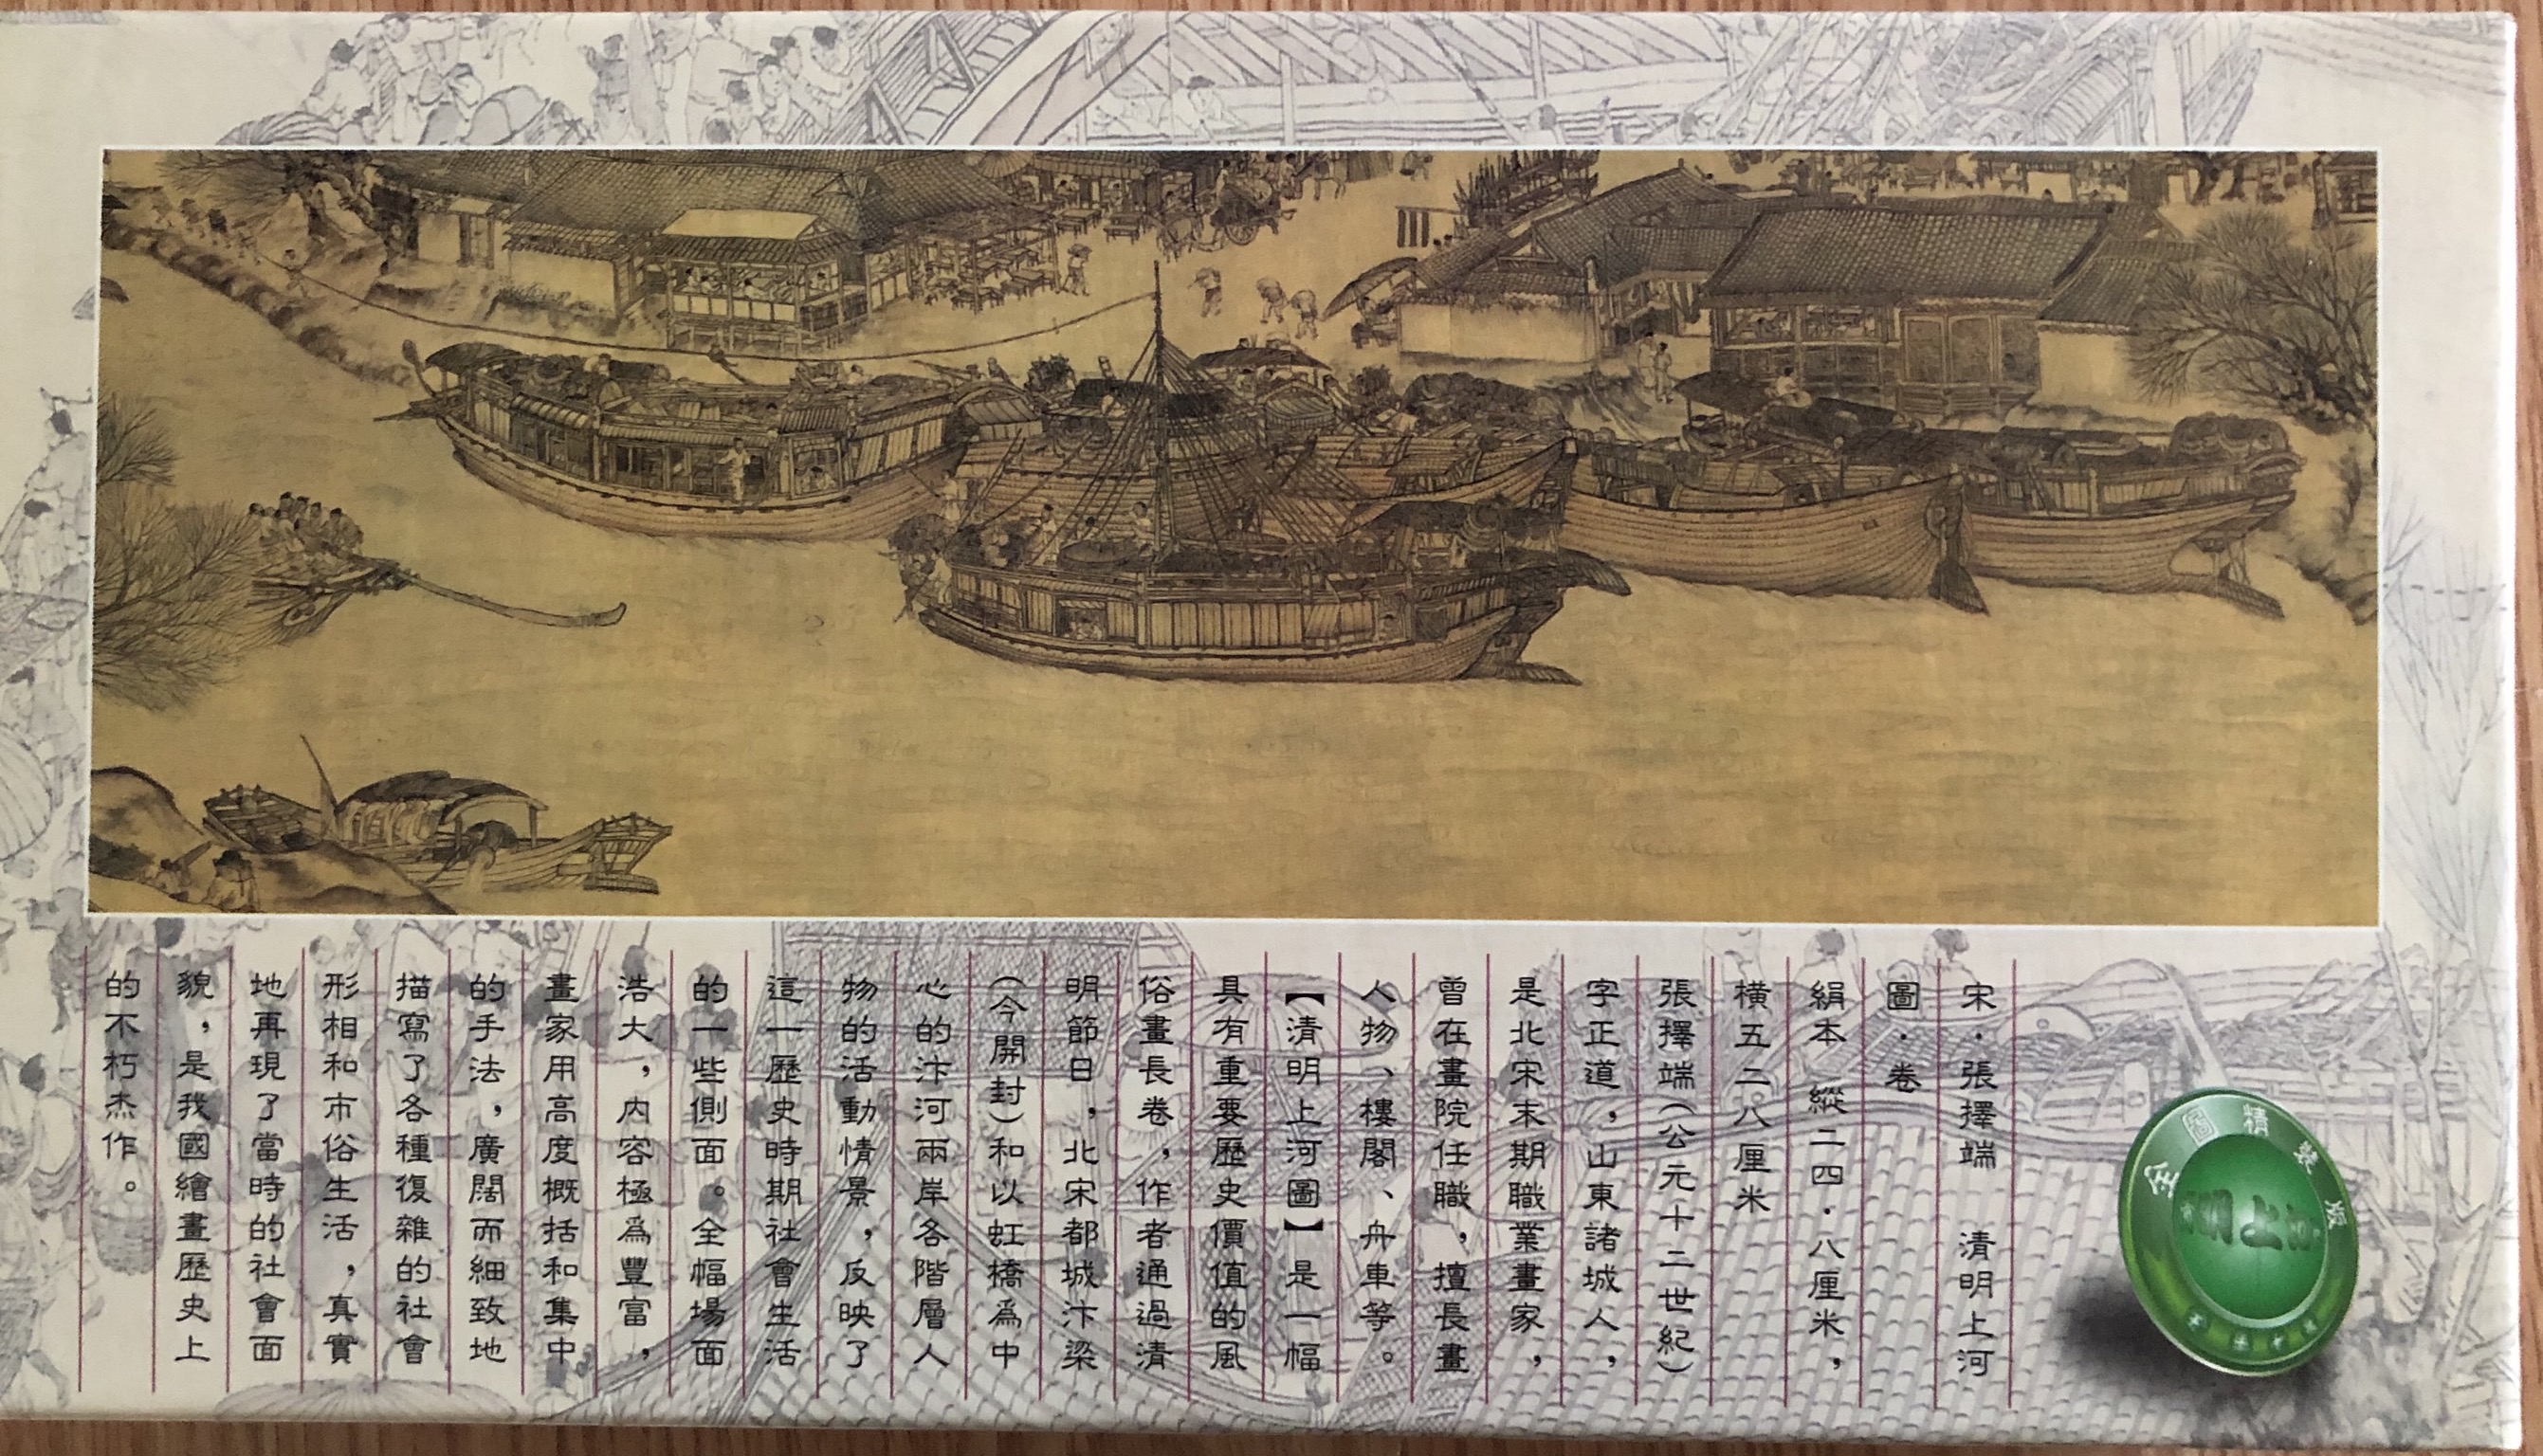 宋·張擇端 清明上河
圖·卷
絹本 縱二四·八厘米，
橫五二八厘米
張擇端（公元十二世紀）
字正道，山東諸城人，
是北宋末期職業畫家，
曾在畫院任職，擅長畫
人物、樓閣、舟車等。
【清明上河圖】是一幅
具有重要歷史價值的風
俗畫長卷，作者通過清
明節日，北宋都城汴梁
（今開封）和以虹橋為中
心的汴河兩岸各階層人
物的活動情景，反映了
這一歷史時期社會生活
的一些側面。全幅場面
浩大，内容極為豐富，
畫家用高度概括和集中
的手法，廣闊而細致地
描寫了各種復雜的社會
形相和市俗生活，真實
地再現了當時的社會面
貌，是我國繪畫歷史上
的不朽杰作。
全圖精裝版